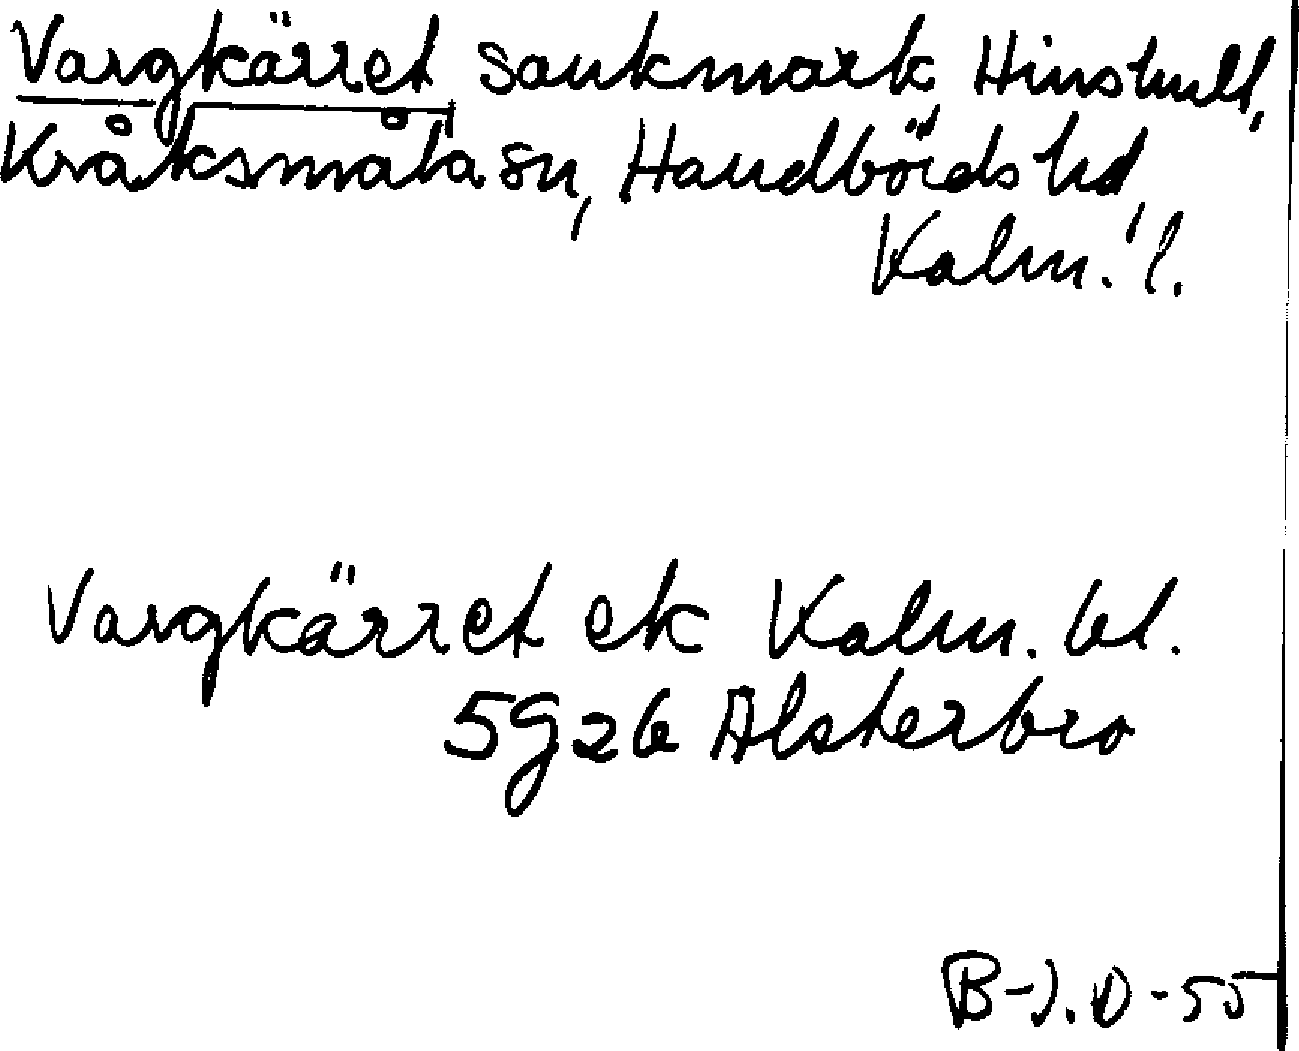 Vargkärret sankmark, Hinshult,
Kråksmåla sn, Handbörds hd,
Kalm. l.
Vargkärret ek Kalm. bl.
5g26 Alsterbro
B-J. D-55